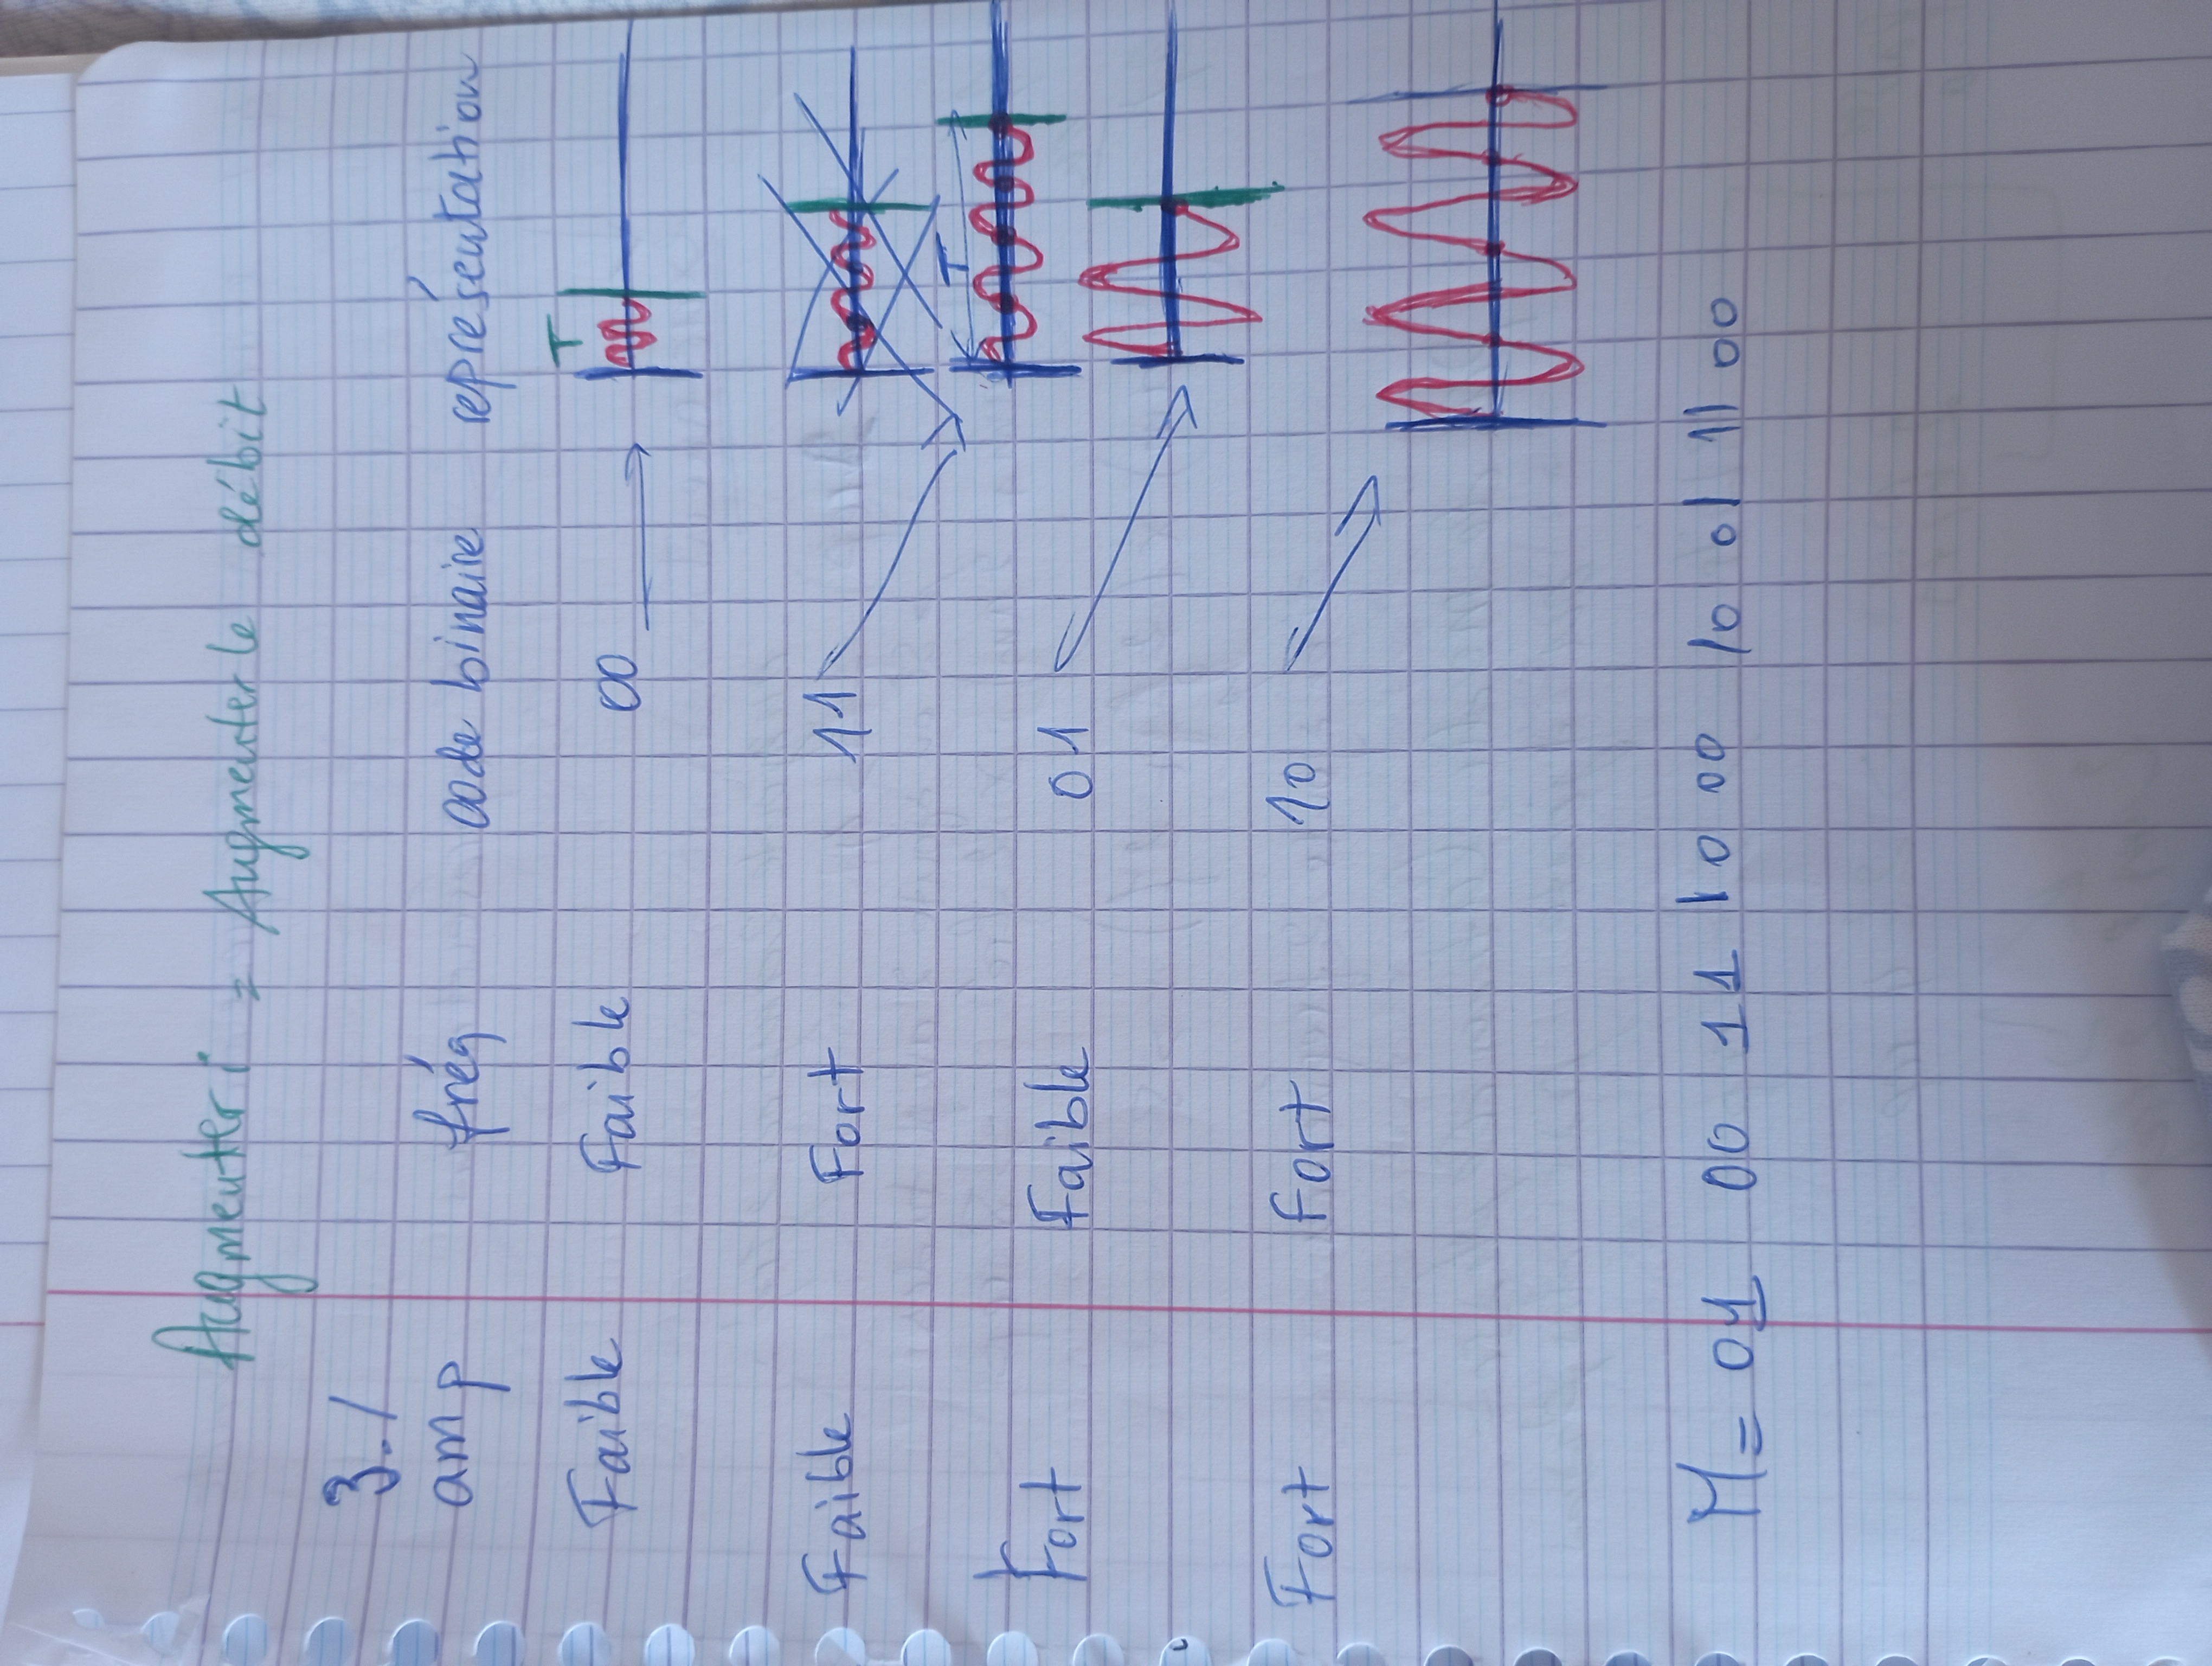 Augmenter i = Augmenter le débit
3./
amp fréq code binaire représentation
T
Faible Faible 00
Faible Fort 11
T
Fort Faible 01
Fort Fort 10
M = 01 00 11 10 00 10 01 11 00